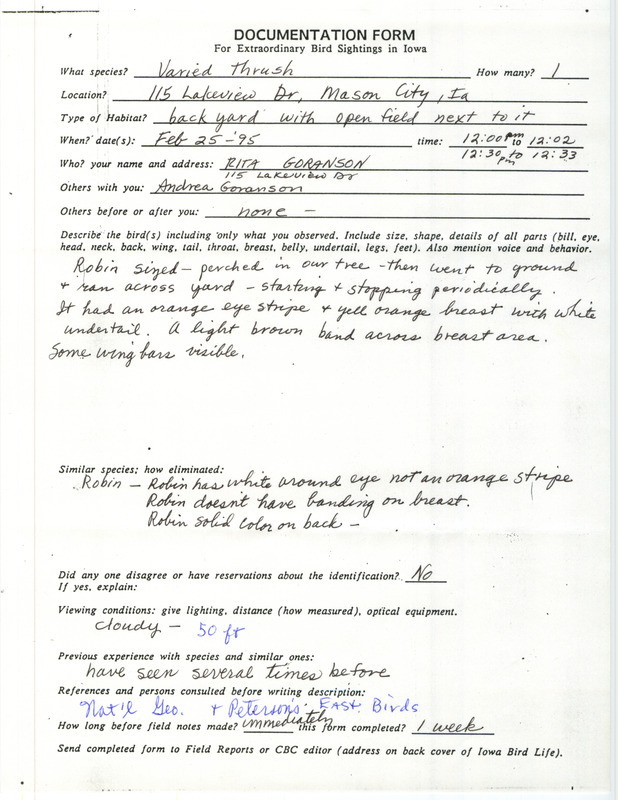 DOCUMENTATION FORM
For Extraordinary Bird Sightings in Iowa
What species? Varied Thrush How many? 1
Location? 115 Lakeview Dr, Mason City, Ia
Type of Habitat? back yard with open field next to it
When? date(s): Feb 25-'95 time: 12:00 pm to 12:02
12:30 pm to 12:33
Who? your name and address: RITA GORANSON
115 LAKEVIEW Dr
Others with you: Andrea Goranson
Others before or after you: none -
Describe the bird(s) including only what you observed. Include size, shape, details of all parts (bill, eye,
head, neck, back, wing, tail, throat, breast, belly, undertail, legs, feet). Also mention voice and behavior.
Robin sized - perched in our tree - then went to ground
+ ran across yard - starting + stopping periodically.
It had an orange eye stripe + yell orange breast with white
undertail. A light brown band across breast area.
Some wing bars visible.
Similar species; how eliminated:
Robin - Robin has white around eye not an orange stripe
Robin doesn't have banding on breast.
Robin solid color on back -
Did any one disagree or have reservations about the identification? No
If yes, explain:
Viewing conditions: give lighting, distance (how measured), optical equipment.
cloudy - 50 ft
Previous experience with species and similar ones:
have seen several times before
References and persons consulted before writing description:
Nat'l Geo. + Peterson's East. Birds
How long before field notes made? immediately this form completed? 1 week
Send completed form to Field Reports or CBC editor (address on back cover of Iowa Bird Life).